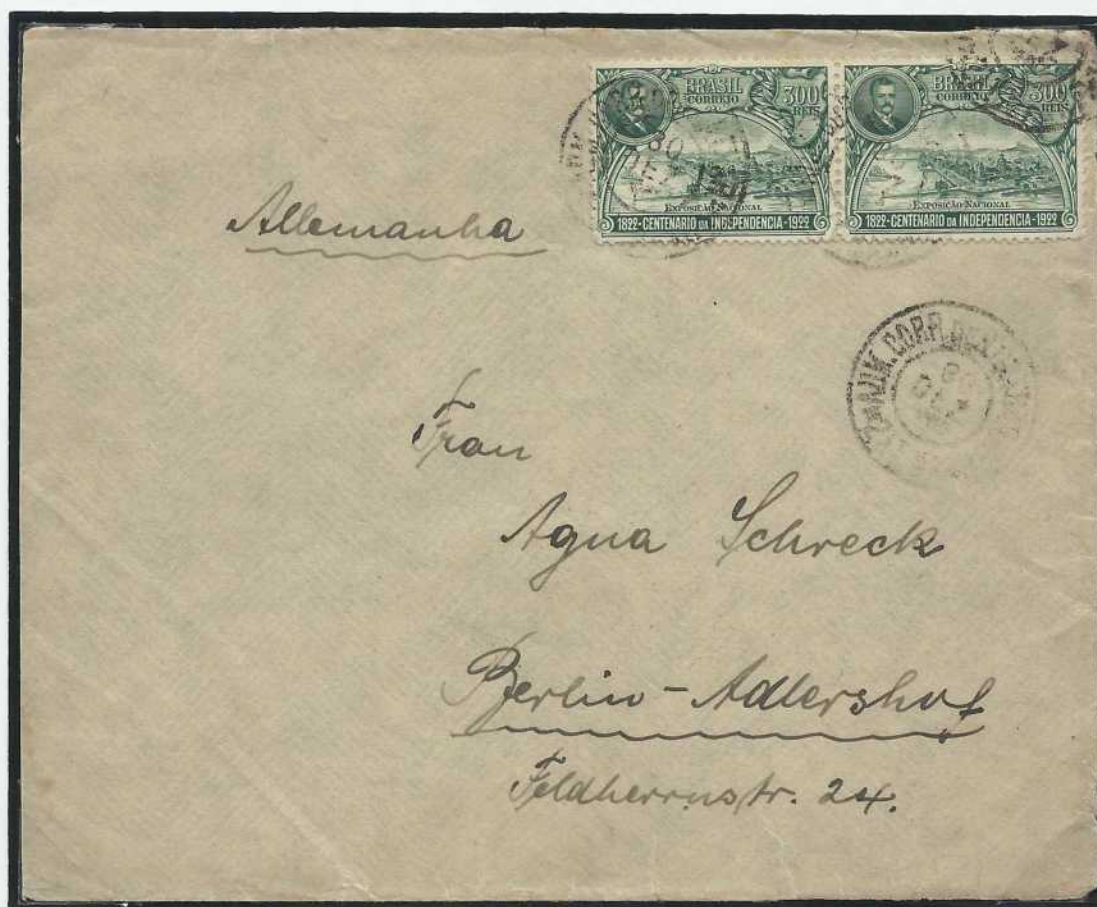 BRASIL
CORREIO
300
REIS
EXPOSIÇÃO NACIONAL
1822-CENTENARIO DA INDEPENDENCIA-1922
BRASIL
CORREIO
300
REIS
EXPOSIÇÃO NACIONAL
1822-CENTENARIO DA INDEPENDENCIA-1922
Allemanha
30
DEZ
Frau
Agna Schreck
Berlin-Adlershof
Feldherrnstr. 24.